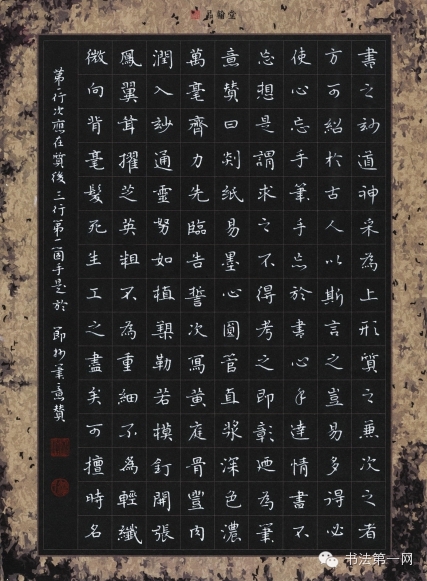 書之妙道神采為上形質之兼次之者
方可紹於古人以斯言之豈易多得必
使心忘手筆手忘於書心手達情書不
忘想是謂求之不得考之即彰迺為筆
意贊曰剡紙易墨心圓管直漿深色濃
萬毫齊力先臨告誓次寫黃庭骨豐肉
潤入妙通靈努如植槊勒若橫釘開張
鳳翼聳擢芝英粗不為重細不為輕纖
微向背毫髮死生工之盡矣可擅時名
第一行次應在質後 三行第一箇手是於 節抄筆意贊
书法第一网